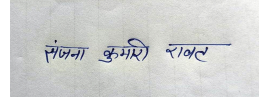 संजना कुमारी रावत